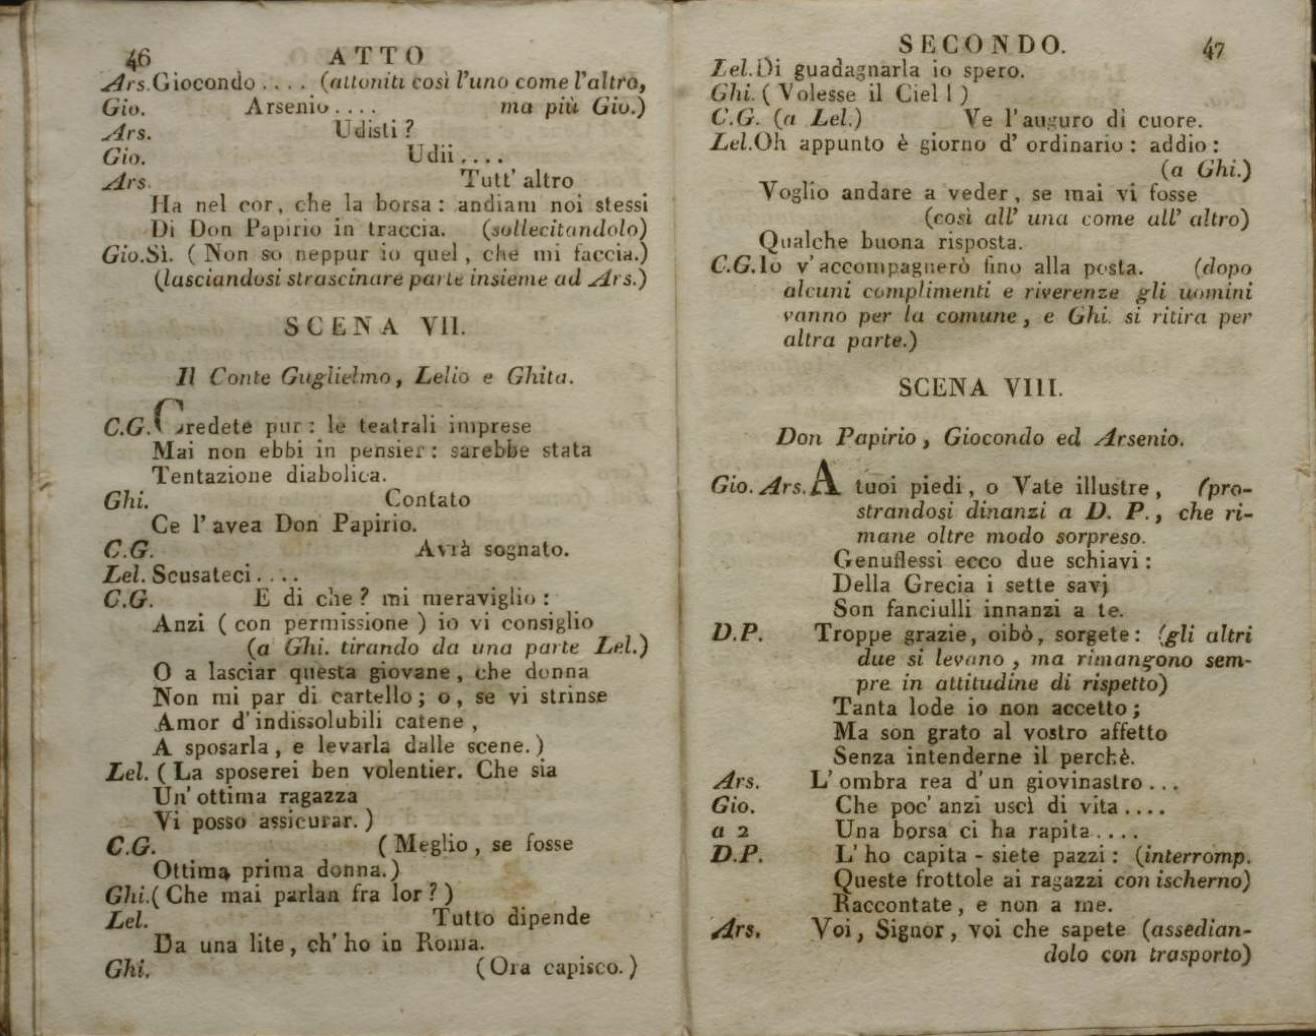 46 ATTO
Ars. Giocondo .... (attoniti così l'uno come l'altro,
Gio. Arsenio .... ma più Gio.)
Ars. Udisti ?
Gio. Udii ....
Ars. Tutt' altro
Ha nel cor, che la borsa : andiam noi stessi
Di Don Papirio in traccia. (sollecitandolo)
Gio. Sì. ( Non so neppur io quel, che mi faccia.)
(lasciandosi strascinare parte insieme ad Ars.)
SCENA VII.
Il Conte Guglielmo, Lelio e Ghita.
C.G. Credete pur : le teatrali imprese
Mai non ebbi in pensier : sarebbe stata
Tentazione diabolica.
Ghi. Contato
Ce l' avea Don Papirio.
C.G. Avrà sognato.
Lel. Scusateci ....
C.G. E di che ? mi meraviglio :
Anzi ( con permissione ) io vi consiglio
(a Ghi. tirando da una parte Lel.)
O a lasciar questa giovane, che donna
Non mi par di cartello ; o, se vi strinse
Amor d' indissolubili catene,
A sposarla, e levarla dalle scene.)
Lel. ( La sposerei ben volentier. Che sia
Un' ottima ragazza
Vi posso assicurar. )
C.G. ( Meglio, se fosse
Ottima prima donna.)
Ghi. ( Che mai parlan fra lor ? )
Lel. Tutto dipende
Da una lite, ch' ho in Roma.
Ghi. (Ora capisco.)
SECONDO. 47
Lel. Di guadagnarla io spero.
Ghi. ( Volesse il Ciel ! )
C.G. (a Lel.) Ve l' auguro di cuore.
Lel. Oh appunto è giorno d' ordinario : addio :
(a Ghi.)
Voglio andare a veder, se mai vi fosse
(così all' una come all' altro)
Qualche buona risposta.
C.G. Io v' accompagnerò fino alla posta. (dopo
alcuni complimenti e riverenze gli uomini
vanno per la comune, e Ghi. si ritira per
altra parte.)
SCENA VIII.
Don Papirio, Giocondo ed Arsenio.
Gio. Ars. A tuoi piedi, o Vate illustre, (pro-
strandosi dinanzi a D. P., che ri-
mane oltre modo sorpreso.
Genuflessi ecco due schiavi :
Della Grecia i sette savj
Son fanciulli innanzi a te.
D.P. Troppe grazie, oibò, sorgete : (gli altri
due si levano, ma rimangono sem-
pre in attitudine di rispetto)
Tanta lode io non accetto ;
Ma son grato al vostro affetto
Senza intenderne il perchè.
Ars. L' ombra rea d' un giovinastro ...
Gio. Che poc' anzi uscì di vita ....
a 2 Una borsa ci ha rapita ....
D.P. L' ho capita - siete pazzi : (interromp.
Queste frottole ai ragazzi con ischerno)
Raccontate, e non a me.
Ars. Voi, Signor, voi che sapete (assedian-
dolo con trasporto)